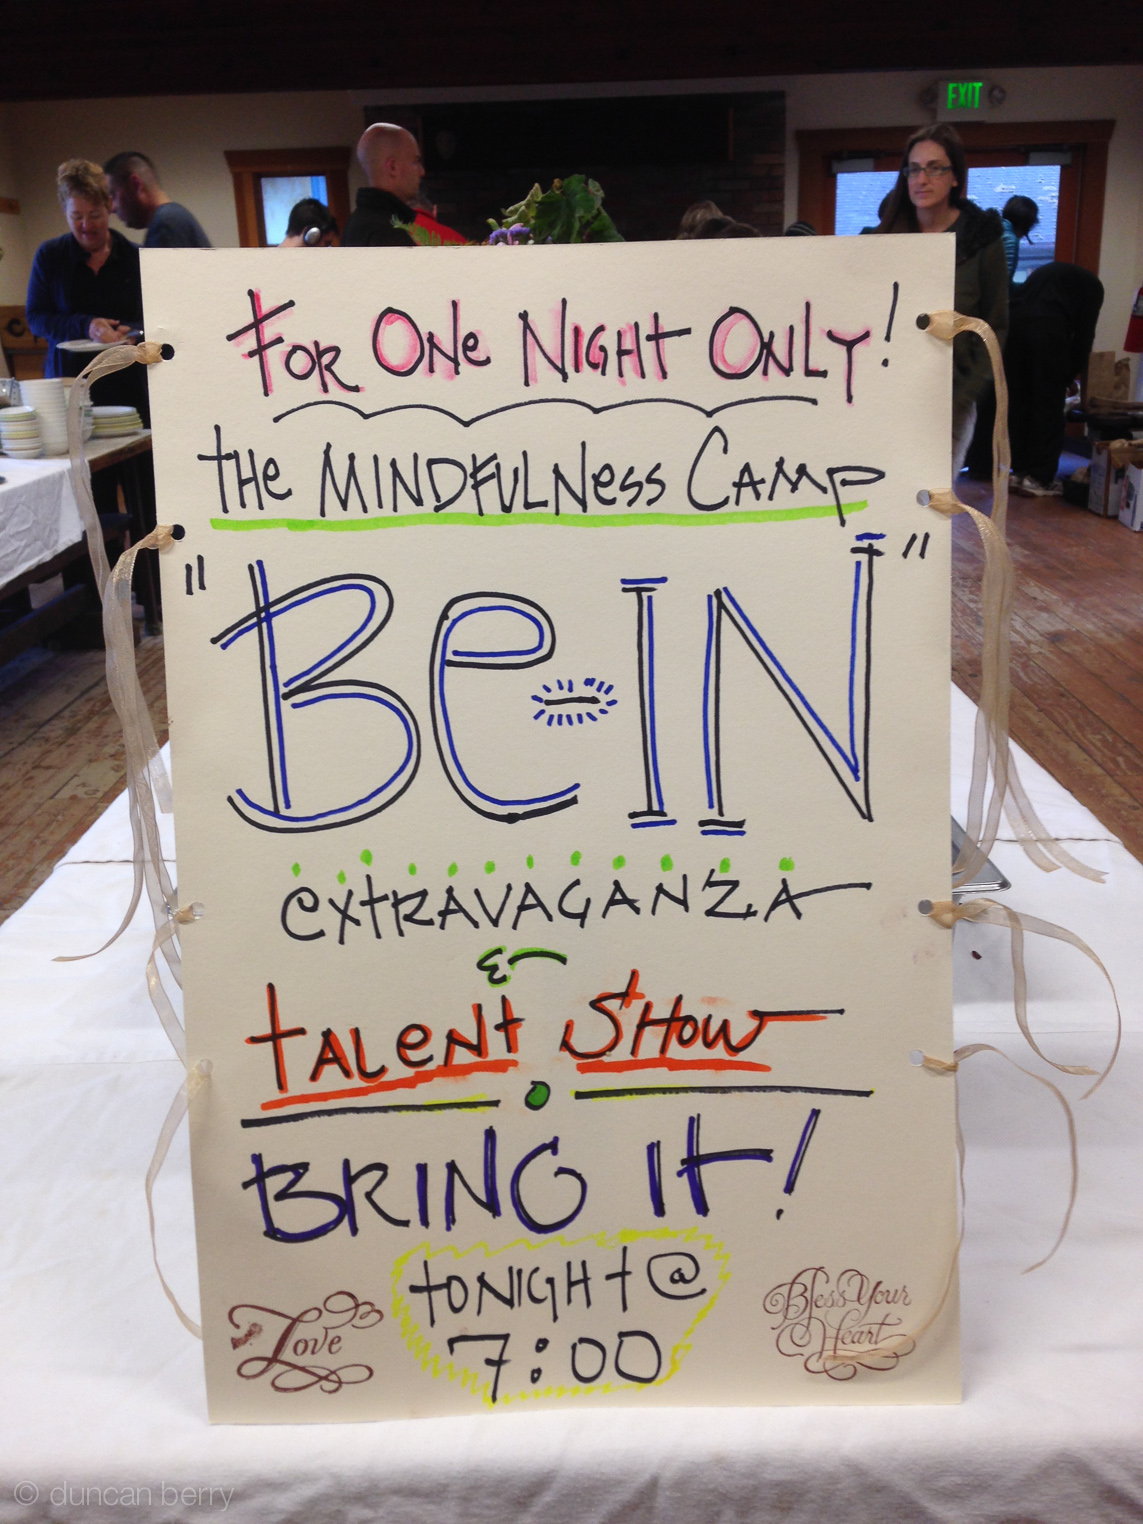 EXIT
FOR ONe NIGHT ONLY!
tHe MINDFULNess CAMP
"Be-IN"
extRAVAGANZA
&
tALeNt SHOW
BRING It!
tONIGHt @
7:00
Love
Bless Your
Heart
© duncan berry